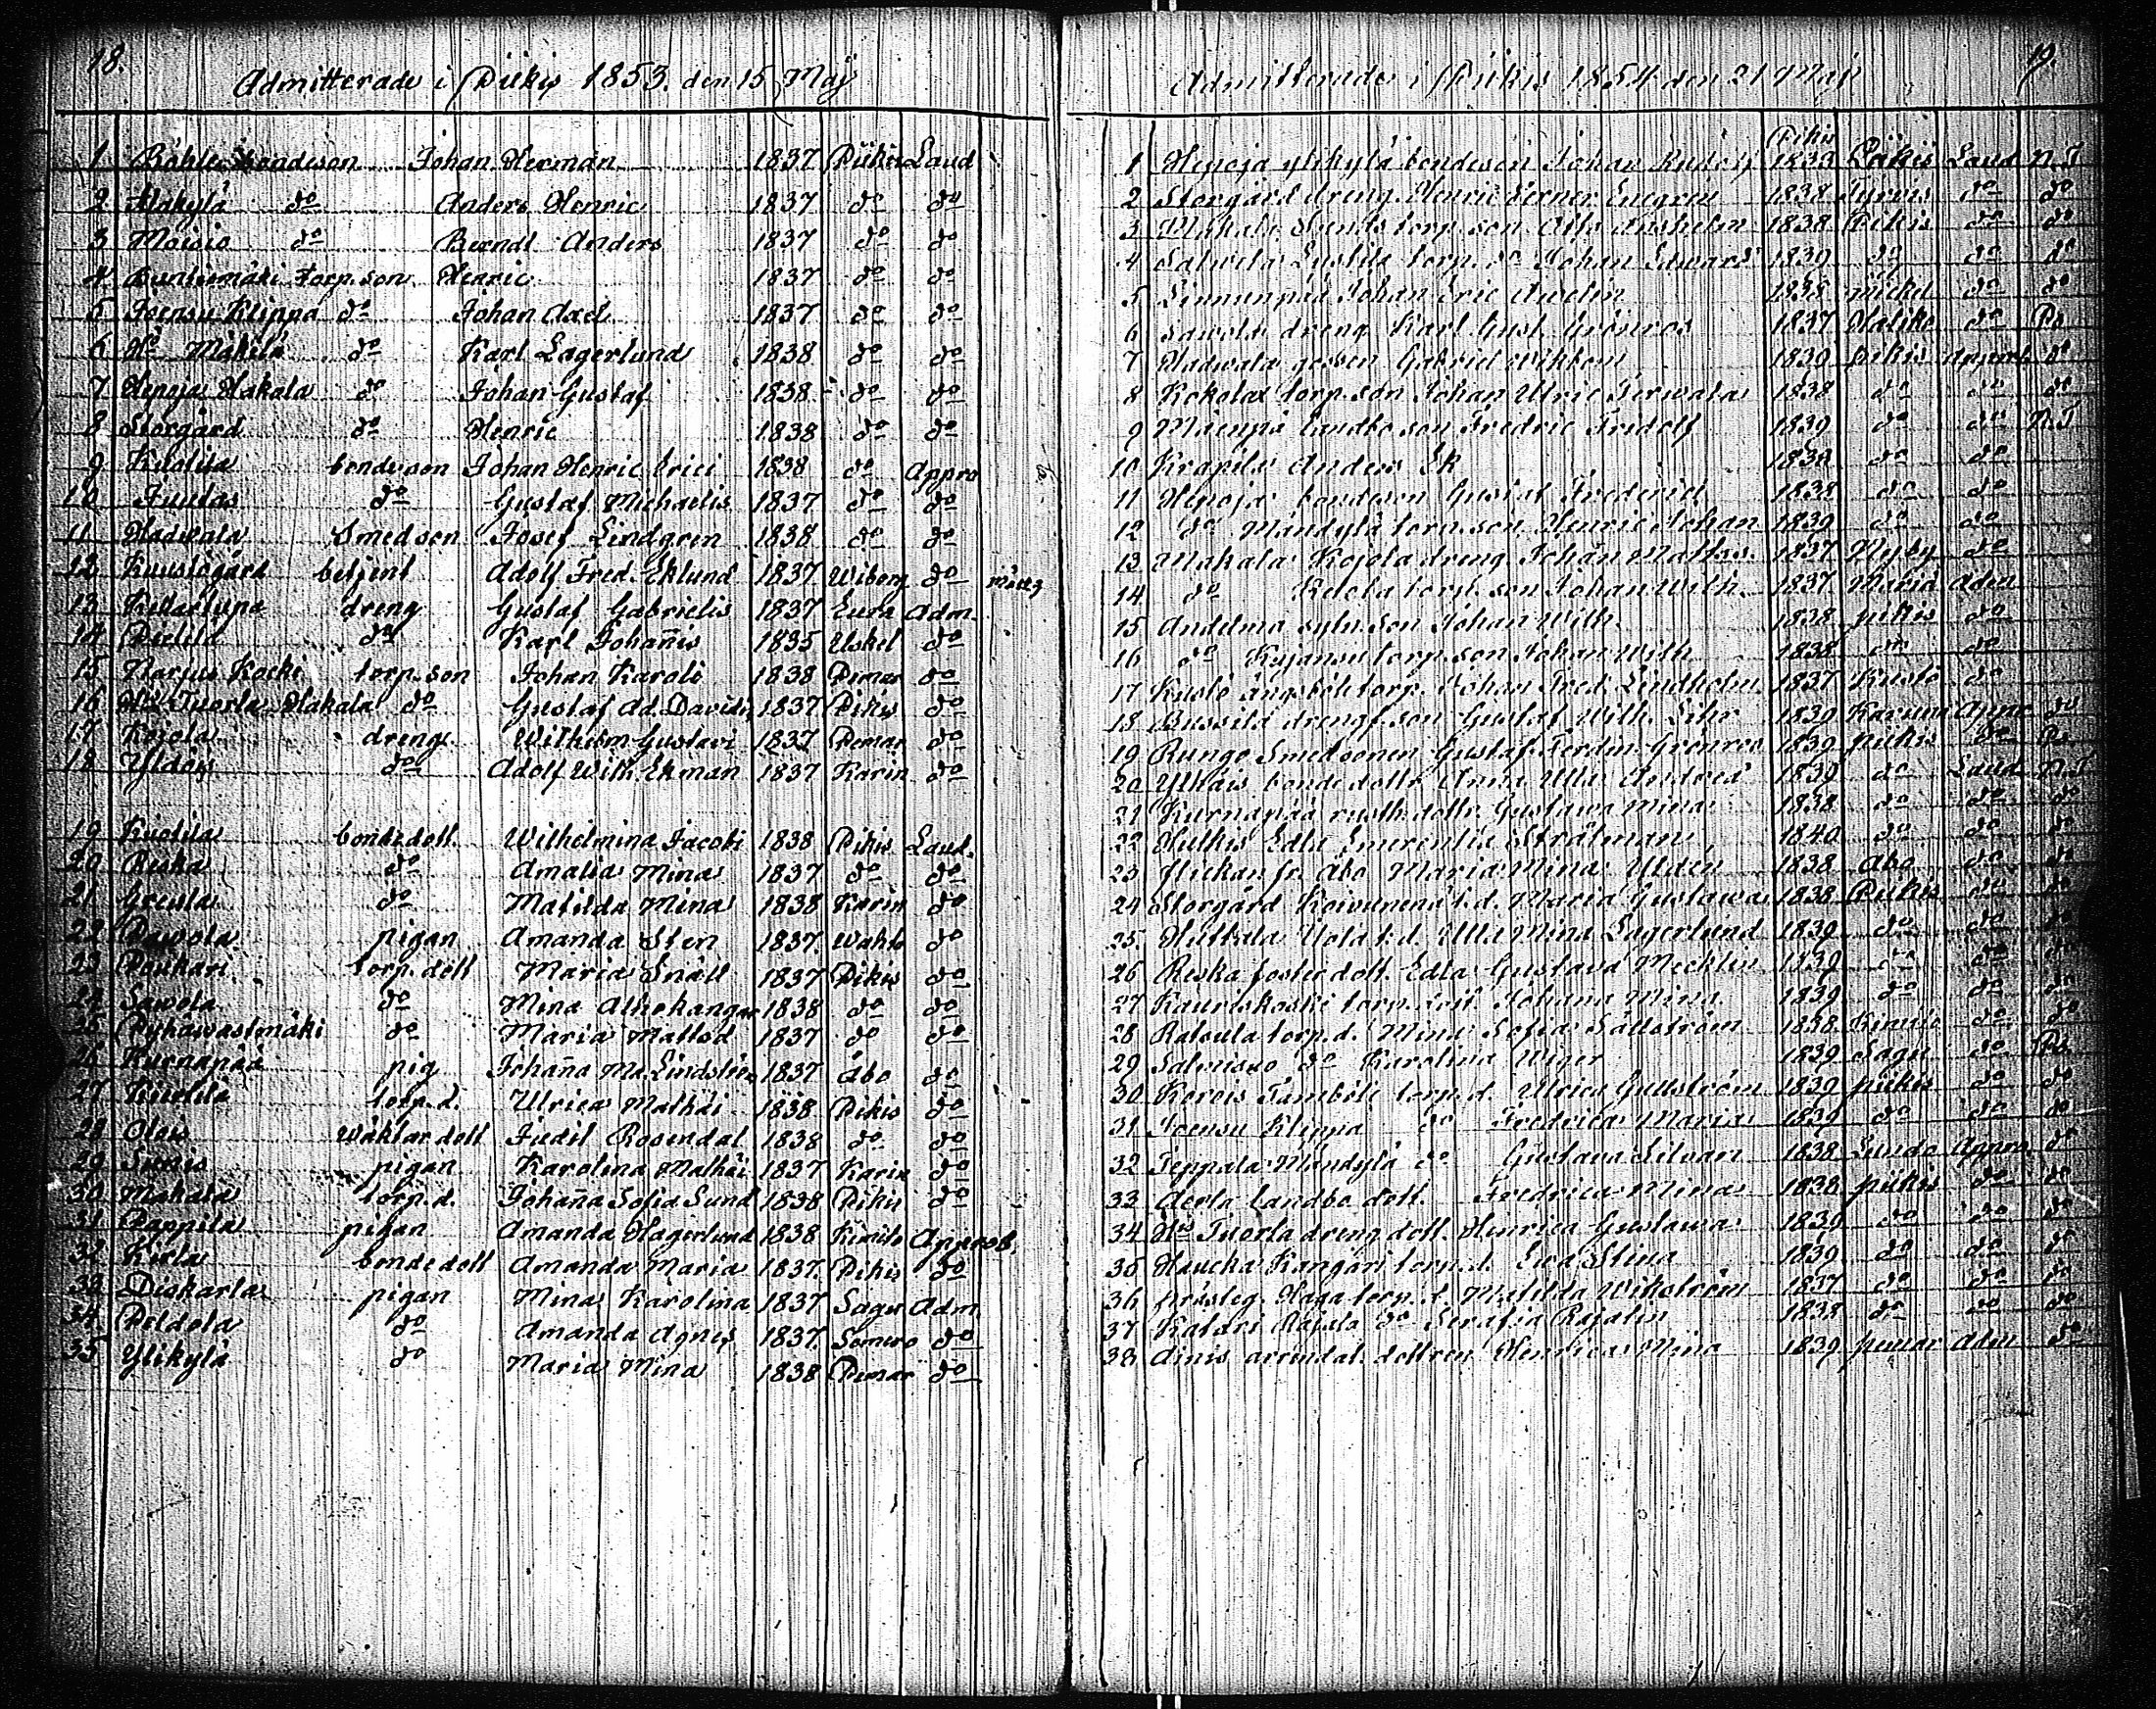 18.
Admitterade i Piikis 1853. den 15 Maj
1 Böhle bondeson Johan Herman 1837 Piikis Laud
2 Alakylä do Anders Henric 1837 do do
3 Moisio do Berndt Anders 1837 do do
4 torp.son Henric 1837 do do
5 Joensu Klippa do Johan Axel 1837 do do
6 Ho Mäkilä do Karl Lagerlund 1838 do do
7 Hepoja Hakala do Johan Gustaf 1838 do do
8 Storgård do Henric 1838 do do
9 Kuolila bondeson Johan Henric Erici 1838 do Appro
10 Juntas do Gustaf Michaelis 1837 do do
11 Hadvala Smedson Josef Lindgren 1838 do do
12 Kuustögård betjent Adolf Fred. Eklund 1837 Wiborg do
13 dreng Gustaf Gabrielis 1837 Eura Adm.
14 do Karl Johañis 1835 Uskel do
15 Harjus Koski torp.son Johan Karoli 1838 Pemar do
16 Tuorla Hakala do Gustaf Ad. Davidis 1837 Pikis do
17 Koiola dreng Wilhelm Gustavi 1837 Pemar do
18 do Adolf Wilh. Ekman 1837 Karin do
19 Kuolila bondedott. Wilhelmina Jacobi 1838 Pikis Laud.
20 Reska do Amalia Mina 1837 do do
21 do Matilda Mina 1838 Karin do
22 Pawola pigan Amanda Sten 1837 Wahto do
23 Poukari torp.dott Maria Snäll 1837 Pikis do
24 Sawola do Mina Alhokangas 1838 do do
25 Pyhäwastmäki do Maria Matlsd 1837 do do
26 Kurnapää pig Johaña Ma. Lindström 1837 Åbo do
27 Kuolila torp.d. Ulrica Mathäi 1838 Pikis do
28 Olois wäktardott Fredil Rosendal 1838 do do
29 Sunis pigan Karolina Mathäi 1837 Karin do
30 Makala torp.d. Johaña Sofia Sund 1838 Pikis do
31 Pappila pigan Amanda Hagerlund 1838 Kimito Approb.
32 Kerla bondedott Amanda Maria 1837 Pikis do
33 Diskarla pigan Mina Karolina 1837 Sagu Adm
34 Peldola do Amanda Agnes 1837 Somero do
35 Ylikylä do Maria Mina 1838 Pemar do
19.
Admitterade i Piikis 1854 den 21 Maj
Pikis
1 Hepoja ylikylä bondeson Johan Rudolf 1838 Piikis Laud N.T
2 Storgård dreng Henric Verner Engren 1838 Tyrvis do do
3 Makala Sunds torp.son Otto Anshelm 1838 Pikis do do
4 torp. do Johan Edward 1839 do do do
5 Johan Eric 1838 do do
6 dreng Karl Gust. Grönroos 1837 Haliko do Ps
7 Hadwala gossen Gabriel 1839 Pikis Approb do
8 Kokolax torp.son Johan Ulric 1838 do do do
9 landbo son Fredric Fridolf 1839 do do N.T
10 Krapila Anders Ek 1838 do do
11 Hepoja bondeson Gustaf Frederiel 1838 do do
12 do Mändylä torp.son Henric Johan 1839 do do
13 Makala Kojola dreng Johan Matths. 1837 Nyby do
14 do torp.son Johan Wilh. 1837 Maria Adm
15 Andelma son Johan Wilh. 1838 piikis do
16 do Kujansu torp.son Johan Wilh. 1838 do do
17 Kustö torp. Johan Fred. Lindholm 1837 Kustö do
18 Bussila drengs.son Gustaf Wilh. 1839 Karuna Appro do
19 Runge Smedsonen Gustaf Ferdin. Grönros 1839 piikis do Ps.
20 bonde dottr Anna Ulla 1839 do Laud. N.T
21 Kurnapää rusth.dottr. Gustava Mina 1838 do do do
22 Huttis Edla Emerentia Stråhlman 1840 do do do
23 flickan fr. Åbo Maria Mina Ulden 1838 Åbo do do
24 Storgård t.d. Maria Gustawa 1838 Piikis do do
25. Huttala t.d. Ulla Mina Lagerlund 1839 do do do
26 Reska foster dott. Edla Gustava Mecklin 1839 do do do
27 Kauriskoski torp.dott Johana Mina 1839 do do do
28 torp.d. Mina Sofia Sällström 1838 Kimito do do
29 do Karolina 1839 Sagu do Ps.
30 Korois torp.d. Ulrica Gullström 1839 piikis do do
31 Joensu Klippa do Fredrica Maria 1839 do do do
32 Teppala Mändylä do Gustava Silvan 1838 Lundo Appro. do
33 Landbo dott. Fredrica Mina 1838 piikis do do
34 Tuorla dreng dott. Henrica Gustawa 1839 do do do
35 Haucka Kangari torp.d. Eva Stina 1839 do do do
36 Haga torp.d. Matilda Wikström 1837 do do do
37 Katari do Serafia Rajalin 1838 do do do
38 Henrica Mina 1839 pemar Adm do